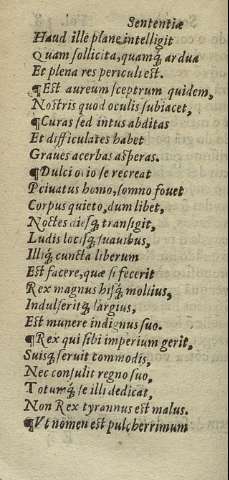 Sententiæ
Haud ille plane intelligit
Quam sollicita, quamq́; ardua
Et plena res periculi est.
¶Est aureum sceptrum quidem,
Nostris quod oculis subiacet,
¶Curas sed intus abditas
Et difficultates habet
Graues acerbas asperas.
¶Dulci otio se recreat
Priuatus homo, somno fouet
Corpus quieto, dum libet,
Noctes diesq́; transigit,
Ludis locisq́; suauibus,
Illiq́; cuncta liberum
Est facere, quæ si fecerit
Rex magnus hisq́; mollius,
Indulserit q́; largius,
Est munere indignus suo.
¶Rex qui sibi imperium gerit,
Suisq́; seruit commodis,
Nec consulit regno suo,
Totumq́; se illi dedicat,
Non Rex tyrannus est malus.
¶Vt nomen est pulcherrimum